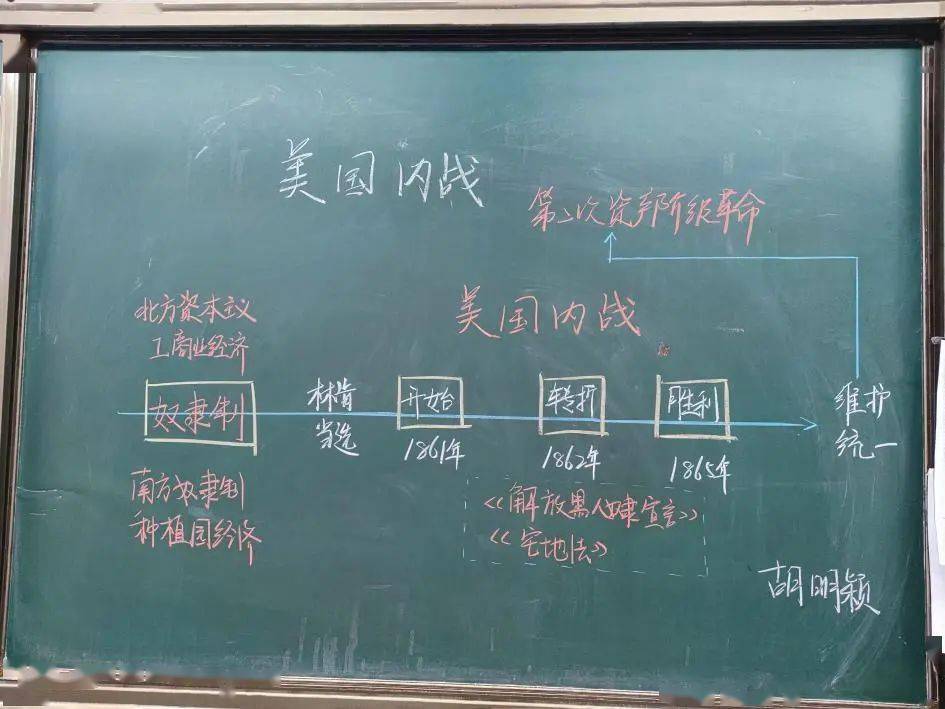 美国内战
第二次资产阶级革命
北方资本主义
工商业经济
美国内战
奴隶制
林肯
当选
开始
1861年
转折
1862年
胜利
1865年
维护
统一
南方奴隶制
种植园经济
《解放黑人奴隶宣言》
《宅地法》
胡明颖